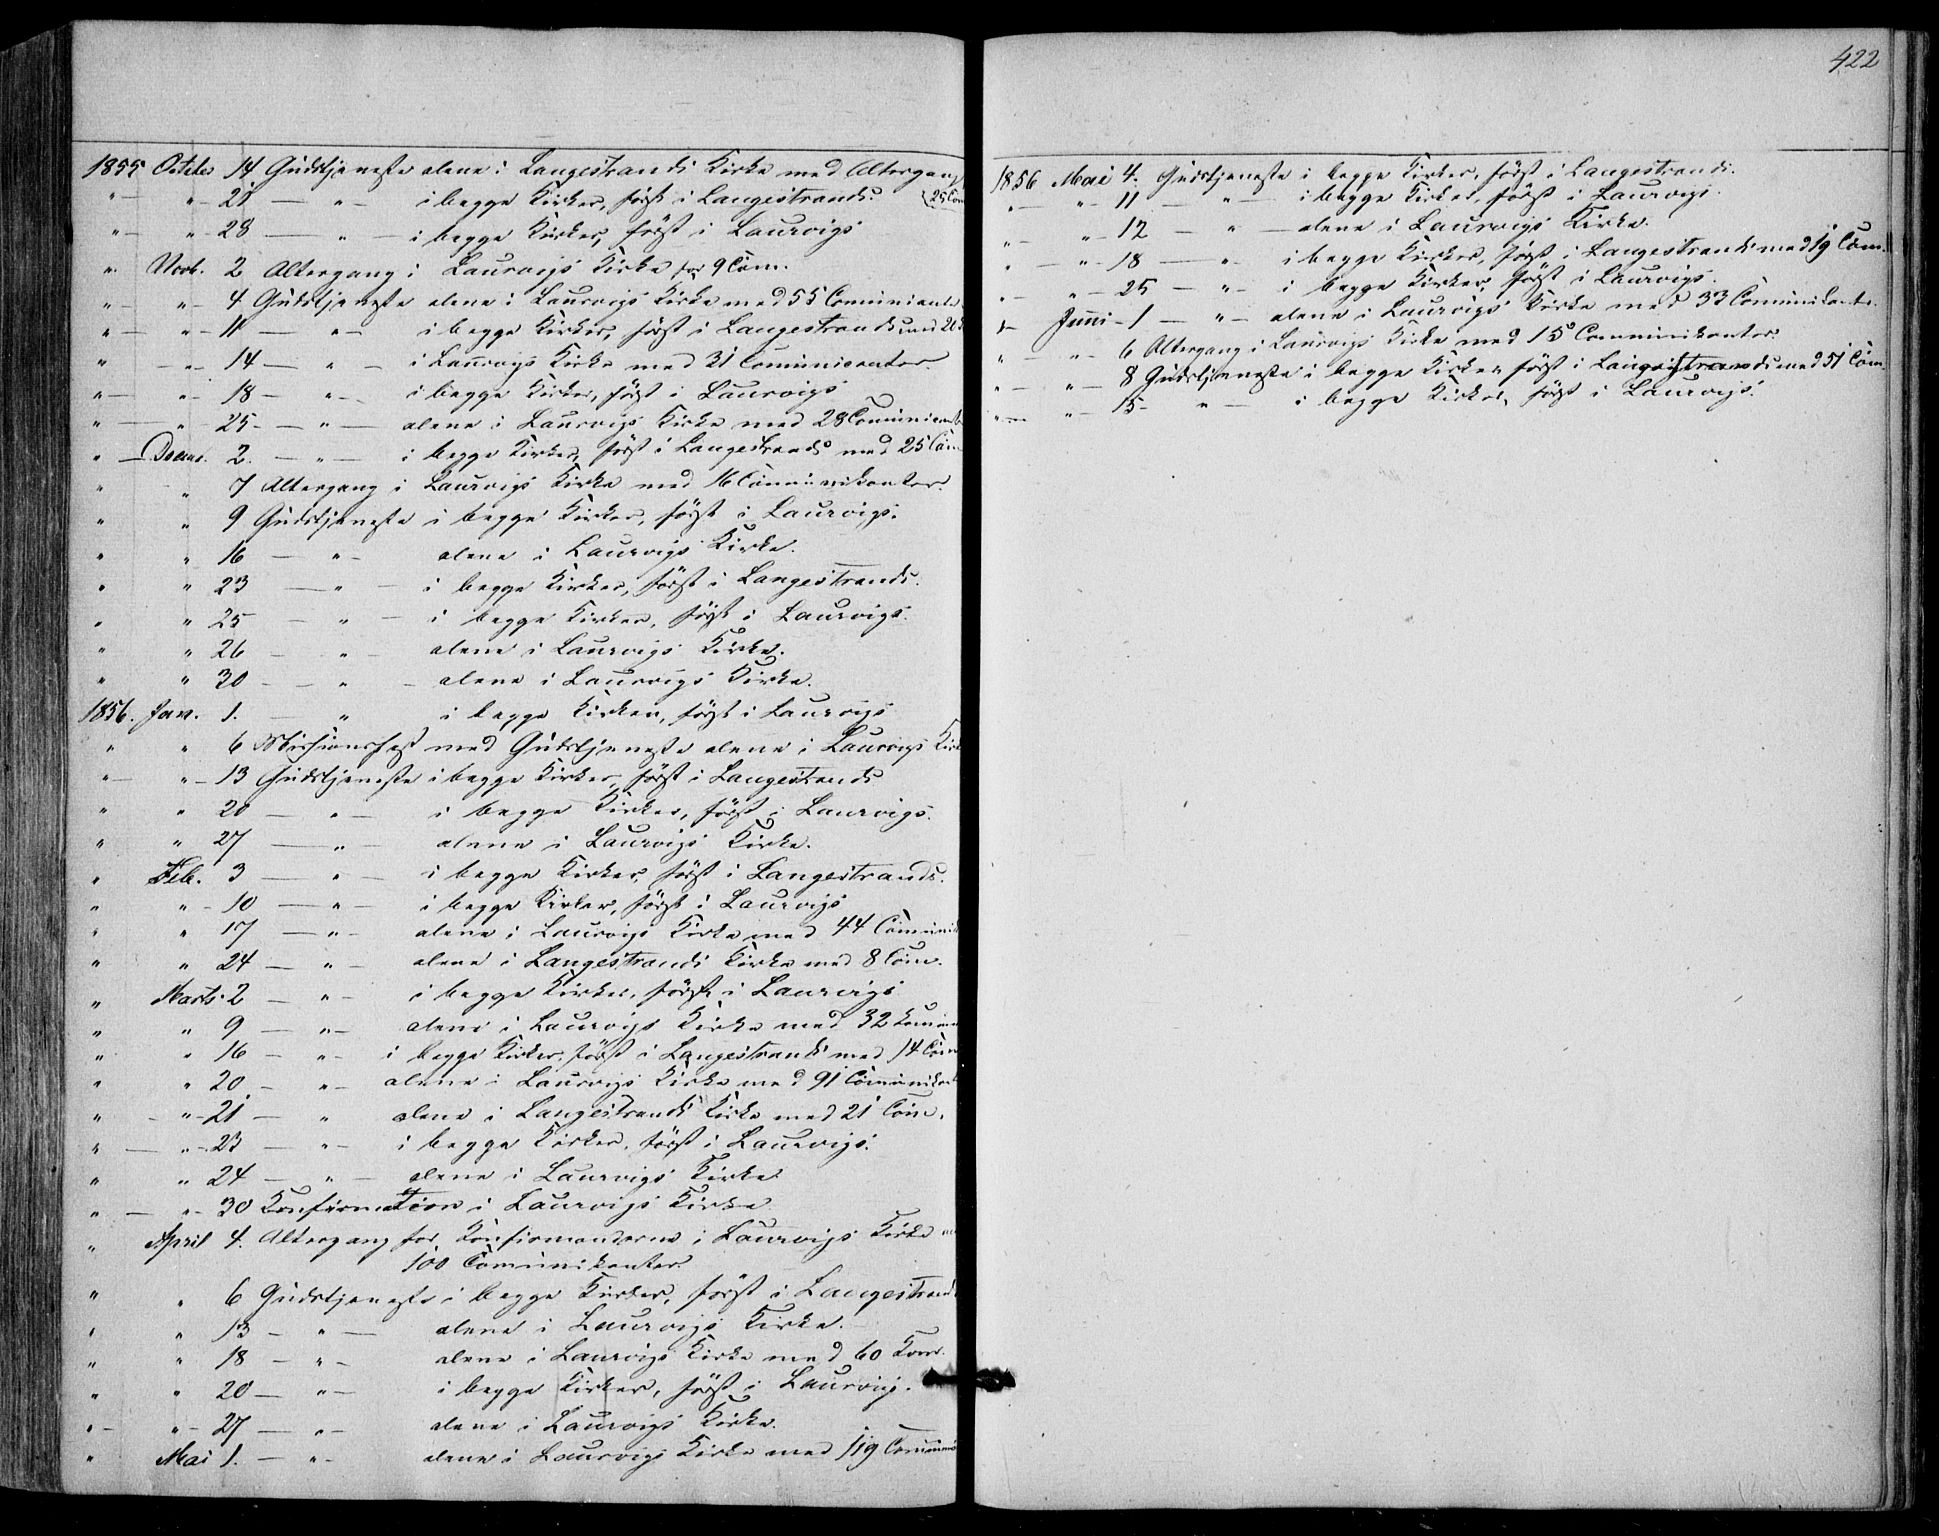 1855 Octbr 14 Gudstjeneste alene i Langestrands Kirke med Altergang
" — " — 21 — " — i begge Kirker, først i Langestrands. (25 Com
" — " — 28 — " — i begge Kirker, først i Laurvigs
" Novb. 2 Altergang i Laurvigs Kirke for 9 Com.
" — " — 4 Gudstjeneste alene i Laurvigs Kirke med 55 Communicante
" — " — 11 — " — i begge Kirker, først i Langestrands med
" — " — 14 — " — i Laurvigs Kirke med 31 Communicanter.
" — " 18 — " — i begge Kirker, først i Laurvigs
" — " 25 — " — alene i Laurvigs Kirke med 28 Communicant
" — Decbr. 2. — " — i begge Kirker, først i Langestrands med 25 Com
" " 7 Altergang i Laurvigs Kirke med 16 Communikanter.
" " 9 Gudstjeneste i begge Kirker, først i Laurvigs.
" " 16 — " — alene i Laurvigs Kirke.
" " 23 — " — i begge Kirker, først i Langestrands.
" " 25 — " — i begge Kirker, først i Laurvigs.
" " 26 — " — alene i Laurvigs Kirke.
" " 30 — " — alene i Laurvigs Kirke.
1856. Jan. 1. — " i begge Kirker, først i Laurvigs
" " 6 Missionsfest med Gudstjeneste alene i Laurvigs Kirk
" — " — 13 Gudstjeneste i begge Kirker, først i Langestrands
" " 20 — " — i begge Kirker, først i Laurvigs.
" " 27 — " — alene i Laurvigs Kirke.
" Feb. 3 — " — i begge Kirker, først i Langestrands.
" " — 10 — " — i begge Kirker, først i Laurvigs
" " 17 — " — alene i Laurvigs Kirke med 44 Communik
" " 24 — " — alene i Langestrands Kirke med 8 Com.
" Marts 2 — " — i begge Kirker, først i Laurvigs
" " 9 — " — alene i Laurvigs Kirke med 32 Commun
" " 16 — " — i begge Kirker, først i Langestrands med 14 Com
" " 20 — " — alene i Laurvigs Kirke med 91 Communikant
" — " — 21 — " alene i Langestrands Kirke med 21 Com.
" — " — 23 — " — i begge Kirker, først i Laurvigs.
" " 24 — " — alene i Laurvigs Kirke
" — " — 30 Confirmation i Laurvigs Kirke
" April 4. Altergang for Confirmanderne i Laurvigs Kirke
100 Communikanter
" " 6 Gudstjeneste i begge Kirker, først i Langestrand
" " 13 — " — alene i Laurvigs Kirke.
" " 18 — " — alene i Laurvigs Kirke med 60 Kom.
" " 20 — " — i begge Kirker, først i Laurvig.
" — " — 27 — " — alene i Laurvigs Kirke.
" Mai 1. — " — alene i Laurvigs Kirke med 119 Communi
422
1856 Mai 4. Gudstjeneste i begge Kirker, først i Langestrands.
" — " — 11 — " — i begge Kirker, først i Laurvigs.
" — " — 12 — " — alene i Laurvigs Kirke.
" — " — 18 — " — i begge Kirker, først i Langestrands med 19 Com.
" — " — 25 — " — i begge Kirker, først i Laurvigs.
" — Juni — 1 — " — alene i Laurvigs Kirke med 33 Communikant.
" — " — 6 Altergang i Laurvigs Kirke med 15 Communikanter.
" — " — 8 Gudstjeneste i begge Kirker først i Langestrands med 51 Com
" — " — 15 — " — i begge Kirker, først i Laurvigs.